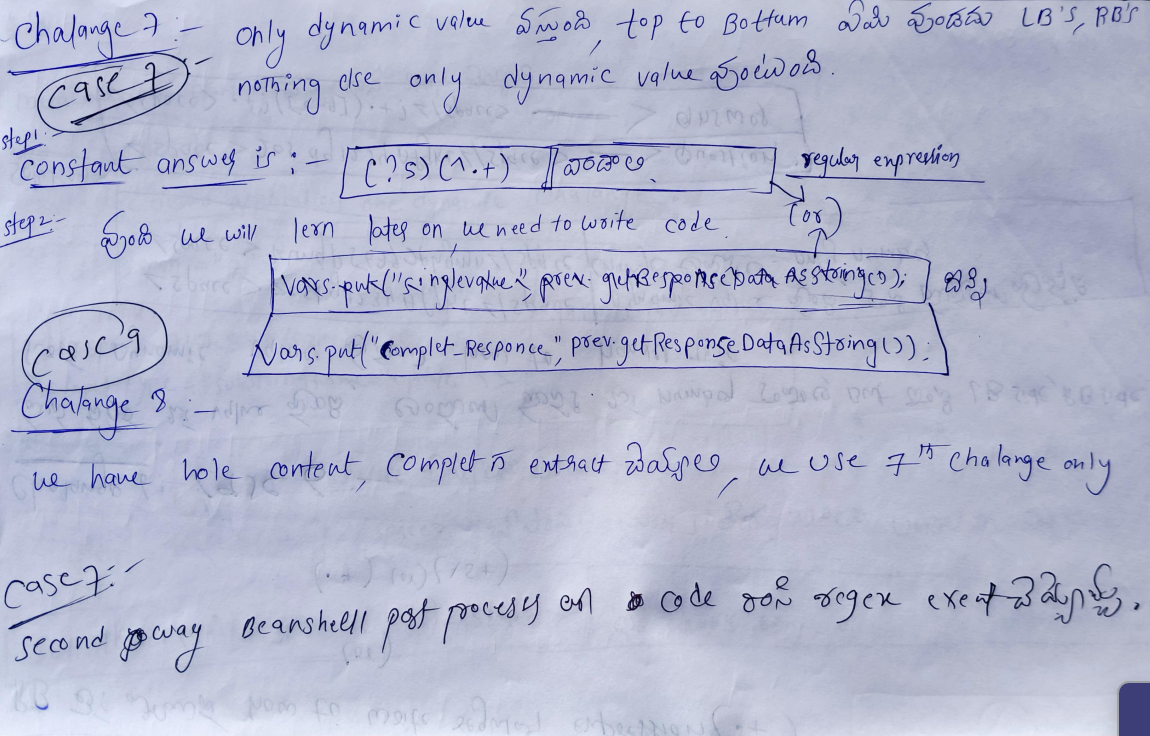 Chalange 7 :- only dynamic value వస్తుంది, top to Bottam ఏమి వుండదు LB's, RB's
Case 7 :- nothing else only dynamic value వుంటుంది.
step1:-
constant answer is :- (?s)(^.+) వాడాలి regular expression
step2:- వుంది we will lern later on, we need to write code (or)
Vars.put("singlevalue", prev.getResponseDataAsString());
Vars.put("Complet_Responce", prev.getResponseDataAsString());
Case 9
Chalange 8 :-
we have hole content, complet గా extract చెయ్యాలి, we use 7th chalange only
Case 7:-
second way Beanshell post process లో code రాసి regex చెయ్యొచ్చు.